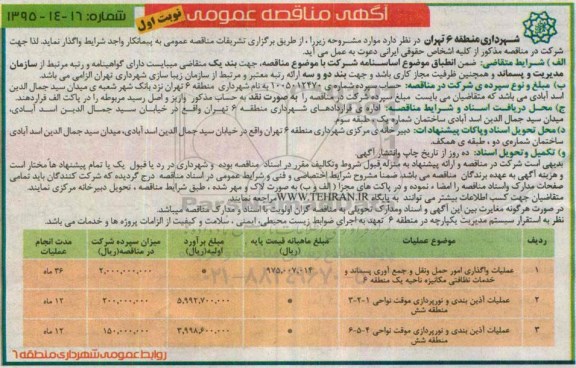 آگهی مناقصه عمومی
نوبت اول
شماره: ۱۶-۱۴-۱۳۹۵
شهرداری منطقه ۶ تهران در نظر دارد موارد مشروحه زیر را، از طریق برگزاری تشریفات مناقصه عمومی به پیمانکار واجد شرایط واگذار نماید. لذا جهت
شرکت در مناقصه مذکور از کلیه اشخاص حقوقی ایرانی دعوت به عمل می آید.
الف) شرایط متقاضی: ضمن انطباق موضوع اساسنامه شرکت با موضوع مناقصه، جهت بند یک متقاضی میبایست دارای گواهینامه و رتبه مرتبط از سازمان
مدیریت و پسماند و همچنین ظرفیت مجاز کاری باشد و جهت بند دو و سه ارائه رتبه معتبر و مرتبط از سازمان زیبا سازی شهرداری تهران الزامی می باشد.
ب) مبلغ و نوع سپرده ی شرکت در مناقصه: حساب سپرده شماره‌ی ۱۰۰۵۰۱۲۴۷۰ به نام شهرداری منطقه ۶ تهران نزد بانک شهر شعبه ی میدان سید جمال الدین
اسد آبادی می باشد که متقاضیان می بایست مبلغ سپرده شرکت در مناقصه را به صورت نقد به حساب مذکور واریز و اصل رسید مربوطه را در پاکت الف قراردهند.
ج) محل دریافت اسناد و شرایط مناقصه: اداره ی قراردادهای شهرداری منطقه ۶ تهران واقع در خیابان سید جمال الدین اسد آبادی،
میدان سید جمال الدین اسد آبادی ساختمان شماره یک، طبقه سوم
د) محل تحویل اسناد و پاکات پیشنهادات: دبیرخانه ی مرکزی شهرداری منطقه ۶ تهران واقع در خیابان سید جمال الدین اسد آبادی، میدان سید جمال الدین اسد آبادی
ساختمان شماره‌ی دو، طبقه ی همکف.
و) تکمیل و تحویل اسناد: ده روز از تاریخ چاپ و انتشار آگهی.
بدیهی است شرکت در مناقصه و ارائه پیشنهاد به منزله قبول شروط و تکالیف مقرر در اسناد مناقصه بوده و شهرداری در رد یا قبول یک یا تمام پیشنهاد ها مختار است
و هزینه آگهی به عهده برندگان مناقصه می باشد. ضمنا مشروح شرایط اختصاصی و فنی و شرایط عمومی در اسناد مناقصه درج گردیده که شرکت کنندگان باید تمامی
صفحات مدارک و اسناد مناقصه را امضا، نموده و در پاکت های مجزا (الف و ب) به صورت لاک و مهر شده، طبق شرایط مناقصه، تحویل دبیرخانه مرکزی نمایند.
متقاضیان جهت کسب اطلاعات بیشتر می توانند به پایگاه WWW.TEHRAN.IR مراجعه نمایند
در صورت هرگونه مغایرت بین این آگهی و اسناد و مدارک تحویلی به مناقصه گران اولویت با اسناد و مدارک مناقصه میباشد.
نظر به استقرار سیستم مدیریت یکپارچه در منطقه ۶ تعهد به اجرای ضوابط زیست محیطی، ایمنی، سلامت و کیفیت از الزامات پروژه ها و خدمات می باشد.
ردیف موضوع عملیات مبلغ ماهیانه قیمت پایه مبلغ برآورد اولیه(ریال) میزان سپرده شرکت در مناقصه(ریال) مدت انجام عملیات
۱ عملیات واگذاری امور حمل ونقل و جمع آوری پسماند و خدمات نظافتی مکانیزه ناحیه یک منطقه ۶ * ۲,۰۰۰,۰۰۰,۰۰۰ ۳۶ ماه
۲ عملیات آذین بندی و نورپردازی موقت نواحی ۱-۲-۳ منطقه شش * ۵,۹۹۲,۷۰۰,۰۰۰ ۲۰۰,۰۰۰,۰۰۰ ۱۲ ماه
۳ عملیات آذین بندی و نورپردازی موقت نواحی ۴-۵-۶ منطقه شش * ۳,۹۹۸,۶۰۰,۰۰۰ ۱۵۰,۰۰۰,۰۰۰ ۱۲ ماه
روابط عمومی شهرداری منطقه ۶